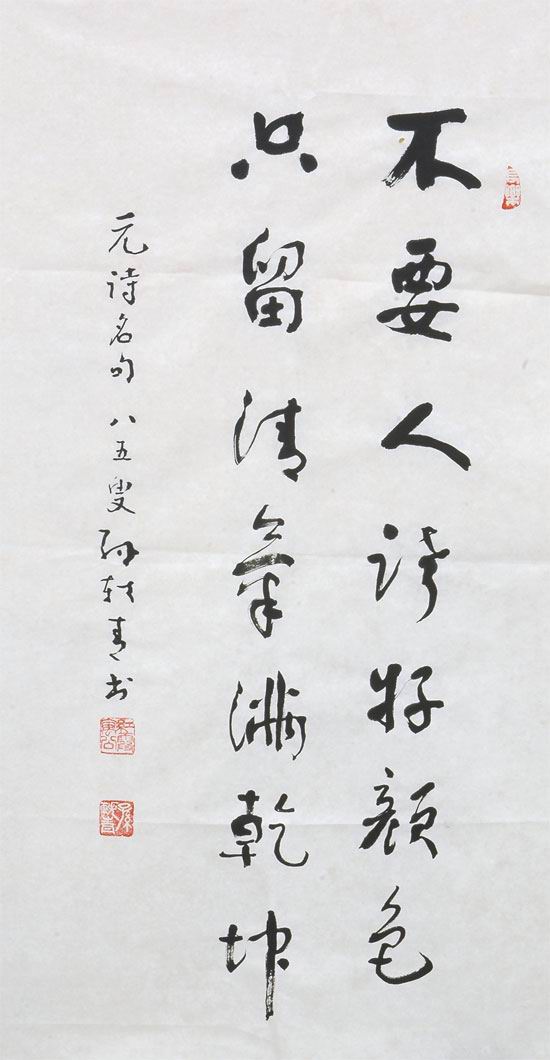 不要人誇好顏色
只留清氣滿乾坤
元诗名句 八五叟 孙轶青书